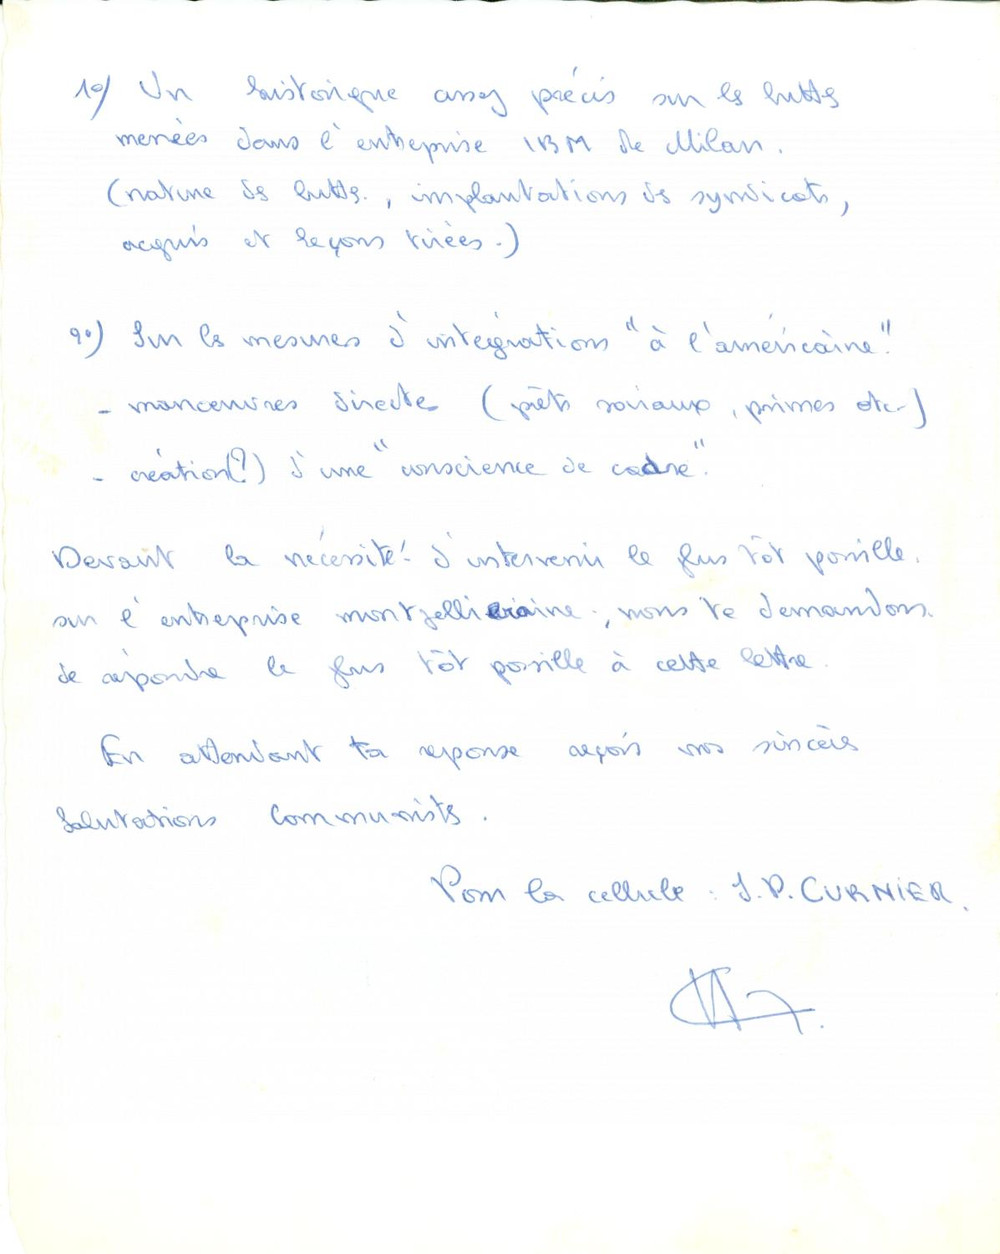 1º/ Un historique assez précis sur les luttes
menées dans l'entreprise IBM de Milan.
(nature des luttes., implantations des syndicats,
acquis et leçons tirées.)
2º) Sur les mesures d'intégrations "à l'américaine"
- manoeuvres directes (prêts sociaux, primes etc-)
- création(?) d'une "conscience de cadre".
Devant la nécessité d'intervenir le plus tôt possible.
sur l'entreprise montpelliéraine, nous te demandons.
de répondre le plus tôt possible à cette lettre.
En attendant ta reponse reçois nos sincères
salutations communistes.
Pour la cellule : J.P. CURNIER.